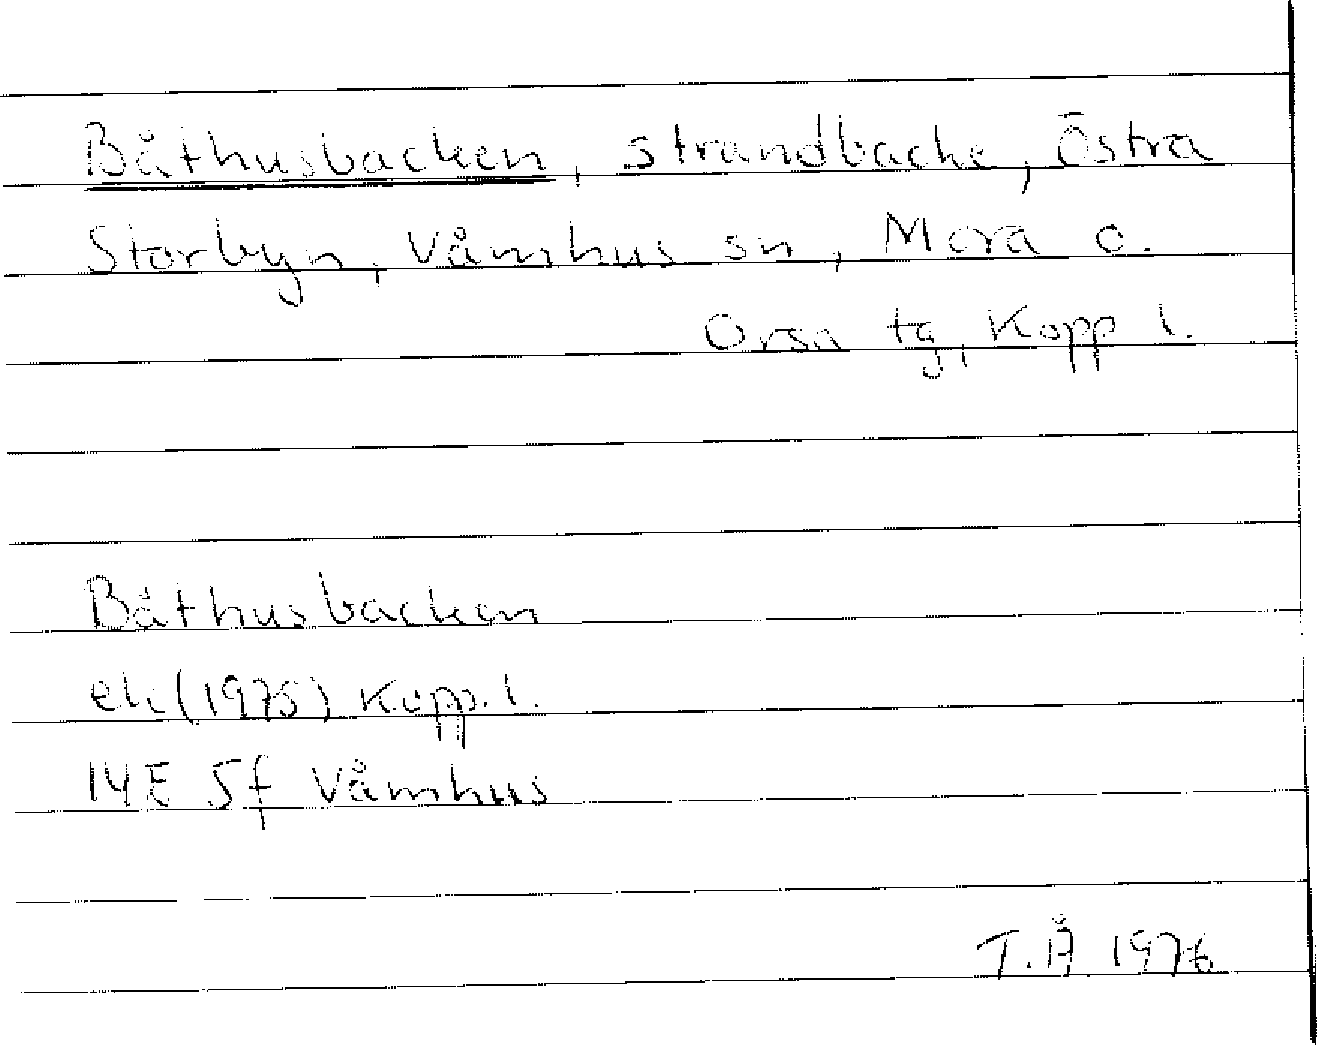 Båthusbacken, strandbacke, Östra
Storbyn, Våmhus sn, Mora o.
Orsa tg, Kopp l.
Båthusbacken
ek (1975) Kopp. l.
14E 5f Våmhus
T.Å 1976